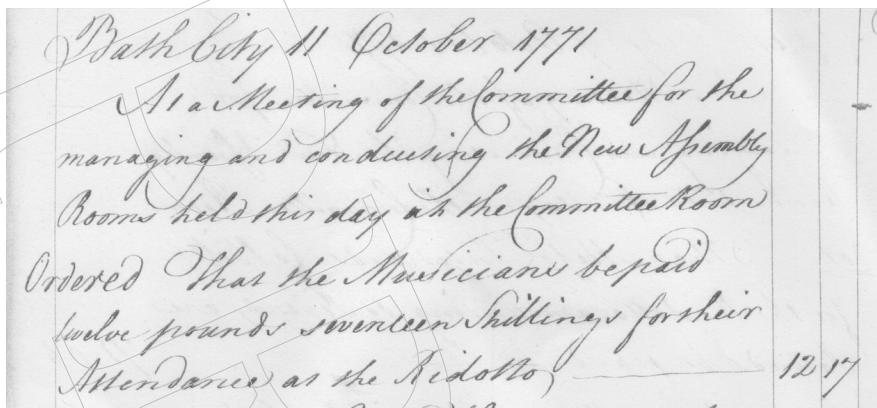 Bath City 11 October 1771
At a Meeting of the Committee for the
managing and conducting the New Assembly
Rooms held this day at the Committee Room
Ordered That the Musicians be paid
twelve pounds seventeen Shillings for their
Attendance at the Ridotto 12 17